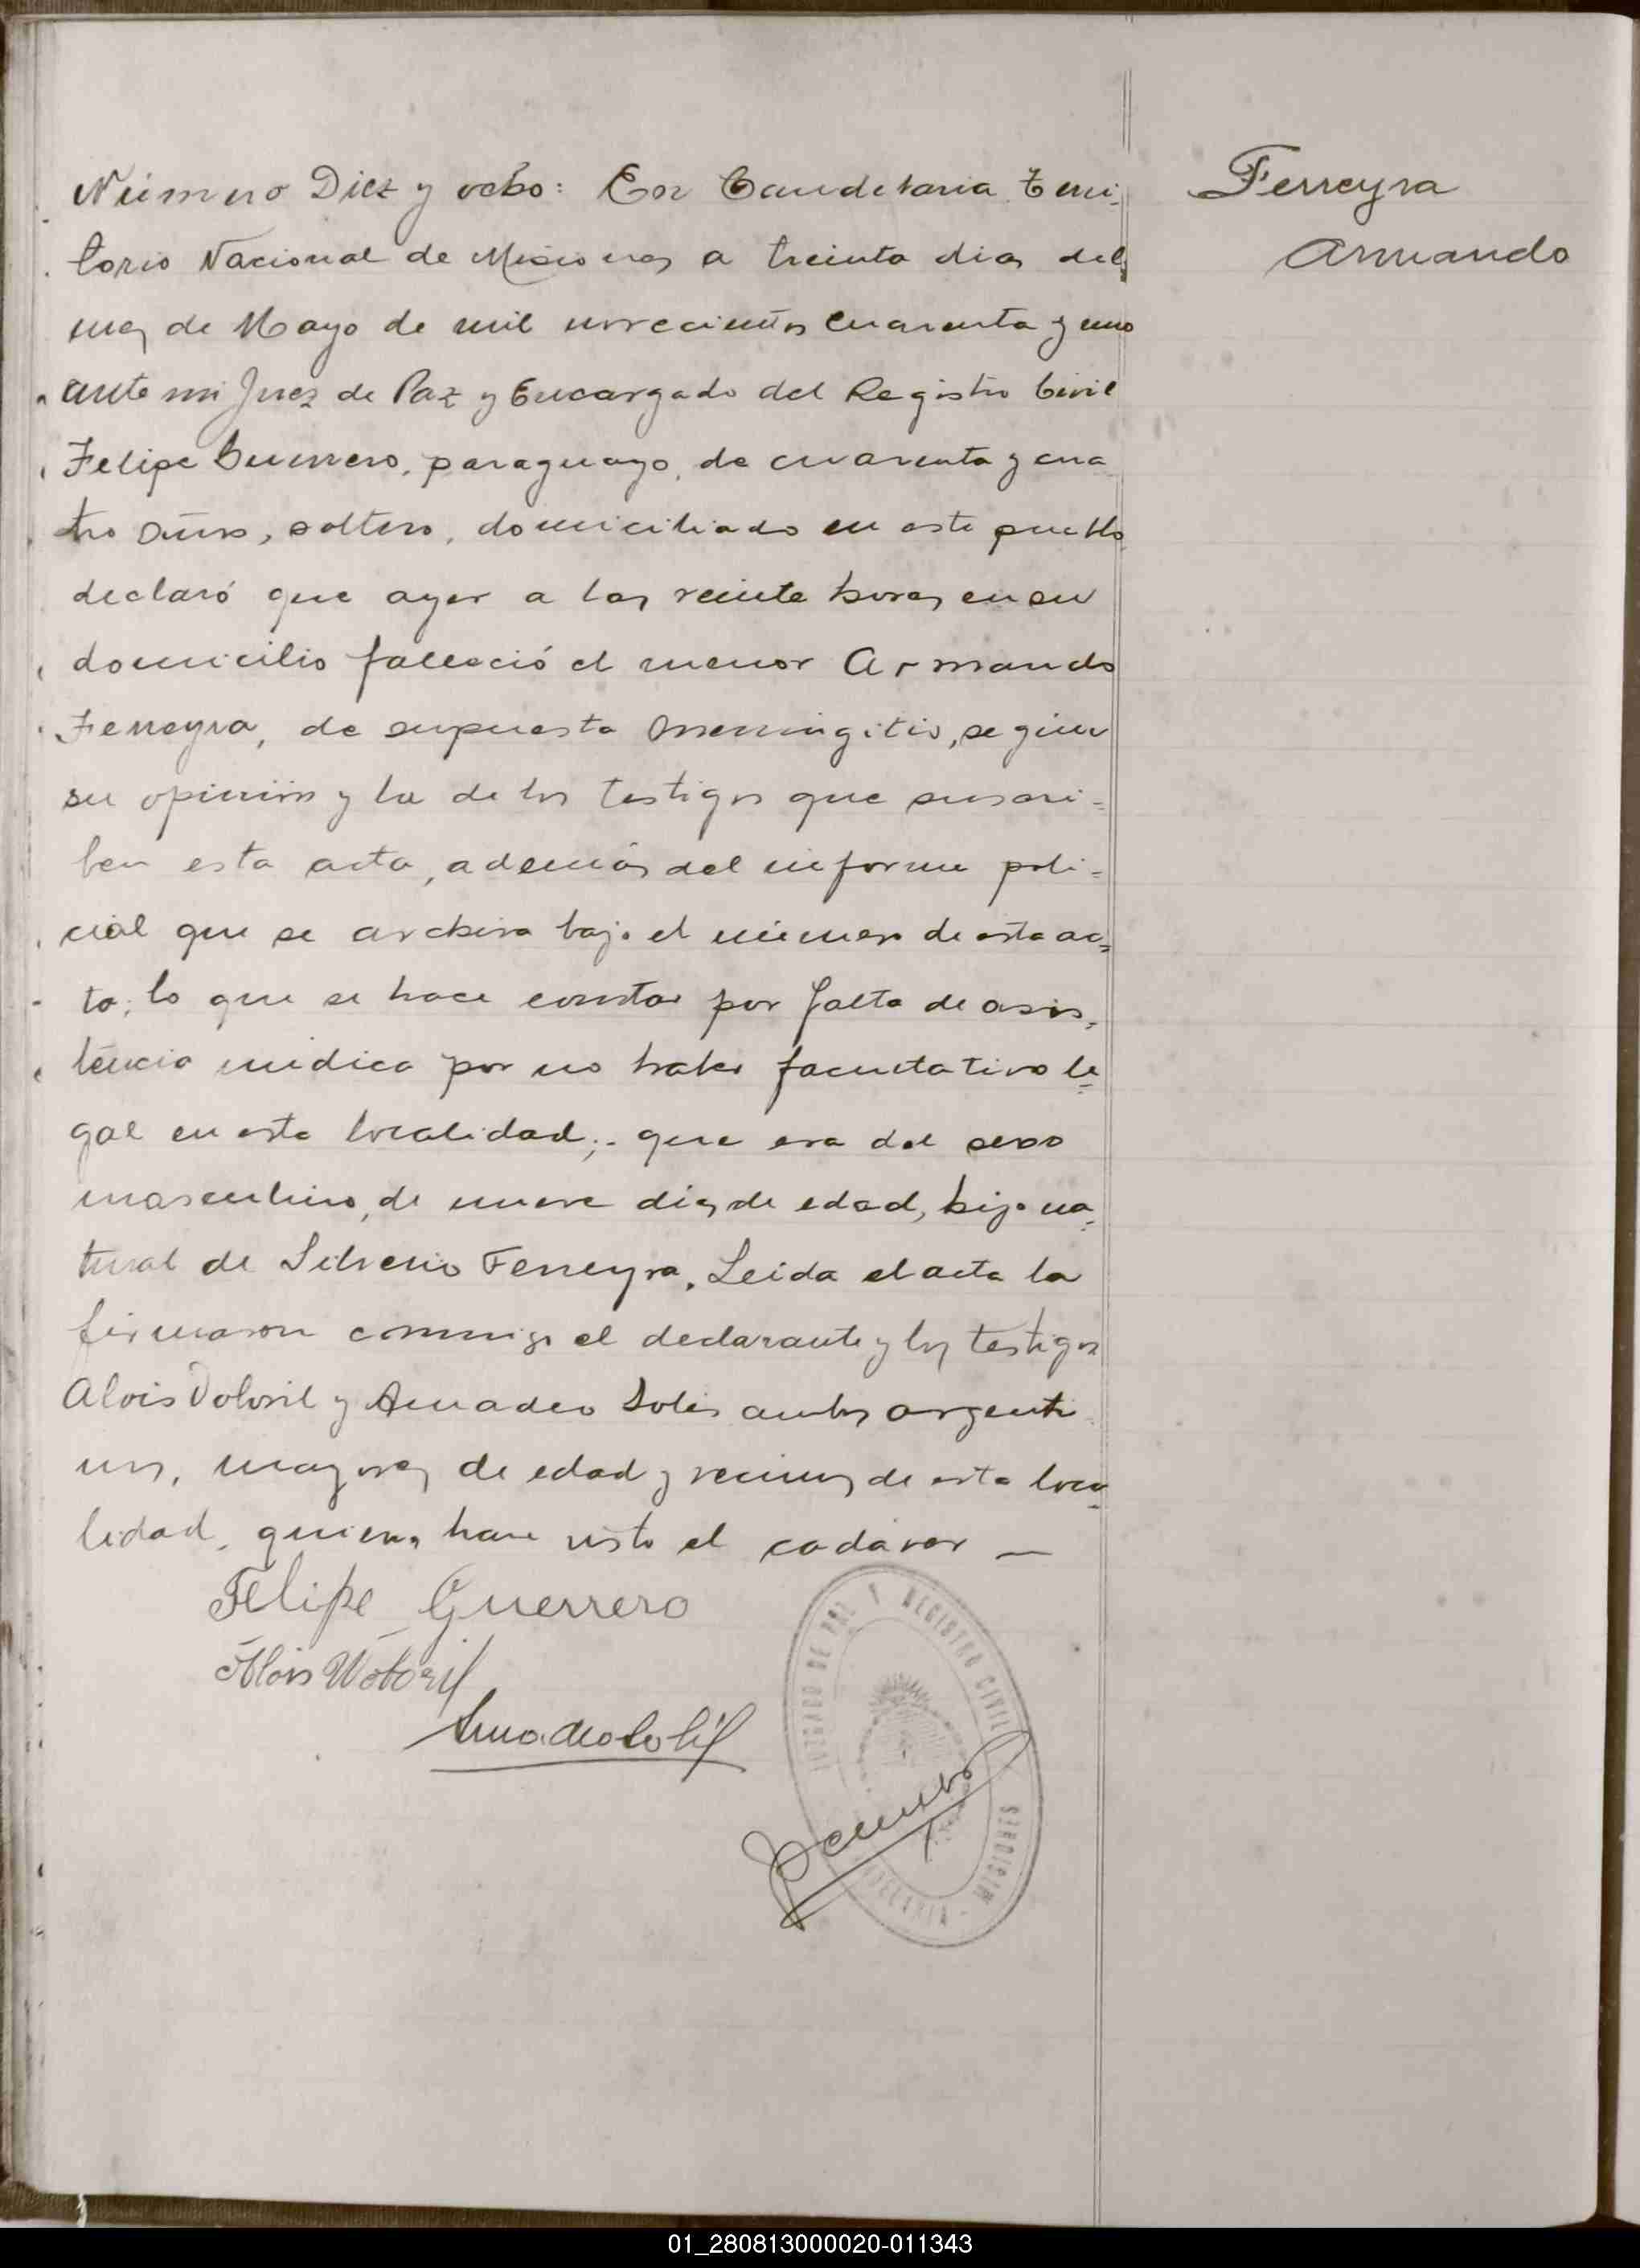 Número Diez y ocho: En Candelaria Terri-
torio Nacional de Misiones a treinta dias del
mes de Mayo de mil novecientos cuarenta y uno
ante mi Juez de Paz y Encargado del Registro Civil
Felipe Guerrero, paraguayo, de cuarenta y cua
tro años, soltero, domiciliado en este pueblo
declaró que ayer a las veinte horas en su
domicilio falleció el menor Armando
Ferreyra, de supuesta meningitis, según
su opinión y la de los testigos que suscri=
ben esta acta, además del informe poli=
cial que se archiva bajo el número de esta ac=
ta; lo que se hace constar por falta de asis=
tencia médica por no haber facultativo le=
gal en esta localidad; que era del sexo
masculino, de nueve dias de edad, hijo na=
tural de Silverio Ferreyra. Leida el acta la
firmaron conmigo el declarante y los testigos
Alois y Amadeo Solis ambos argenti
nos, mayores de edad y vecinos de esta loca=
lidad, quienes han visto el cadáver —
Felipe Guerrero
Alois
Amadeo Solis
JUZGADO DE PAZ Y REGISTRO CIVIL
Ferreyra
Armando
01_280813000020-011343